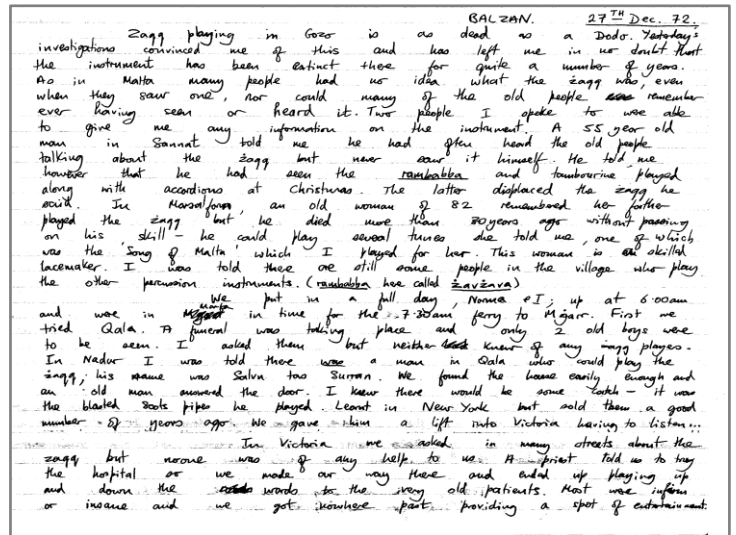 BALZAN. 27TH Dec. 72.
Zagq playing in Gozo is as dead as a Dodo. Yesterday's
investigations convinced me of this and has left me in no doubt that
the instrument has been extinct there for quite a number of years.
As in Malta many people had no idea what the żagq was, even
when they saw one, nor could many of the old people remember
ever having seen or heard it. Two people I spoke to were able
to give me any information on the instrument. A 55 year old
man in Sannat told me he had often heard the old people
talking about the żagq but never saw it himself. He told me
however that he had seen the rambabba and tambourine played
along with accordions at Christmas. The latter displaced the żagq he
said. In Marsalforn, an old woman of 82 remembered her father
played the żagq but he died more than 30 years ago without passing
on his skill - he could play several tunes she told me, one of which
was the 'Song of Malta' which I played for her. This woman is a skilled
lacemaker. I was told there are still some people in the village who play
the other percussion instruments. (rambabba here called żavżava)
We put in a full day, Norma & I; up at 6.00am
and were in Marfa in time for the 7.30am ferry to Mġarr. First we
tried Qala. A funeral was taking place and only 2 old boys were
to be seen. I asked them but neither knew of any żagq players.
In Nadur I was told there was a man in Qala who could play the
żagq; his name was Salvu tas Surran. We found the house easily enough and
an old man answered the door. I knew there would be some catch - it was
the blasted Scots pipes he played. Learnt in New York but sold them a good
number of years ago. We gave him a lift into Victoria having to listen...
In Victoria we asked in many streets about the
zaqq but noone was of any help to us. A priest told us to try
the hospital so we made our way there and ended up playing up
and down the wards to the very old patients. Most were infirm
or insane and we got nowhere past providing a spot of entertainment.